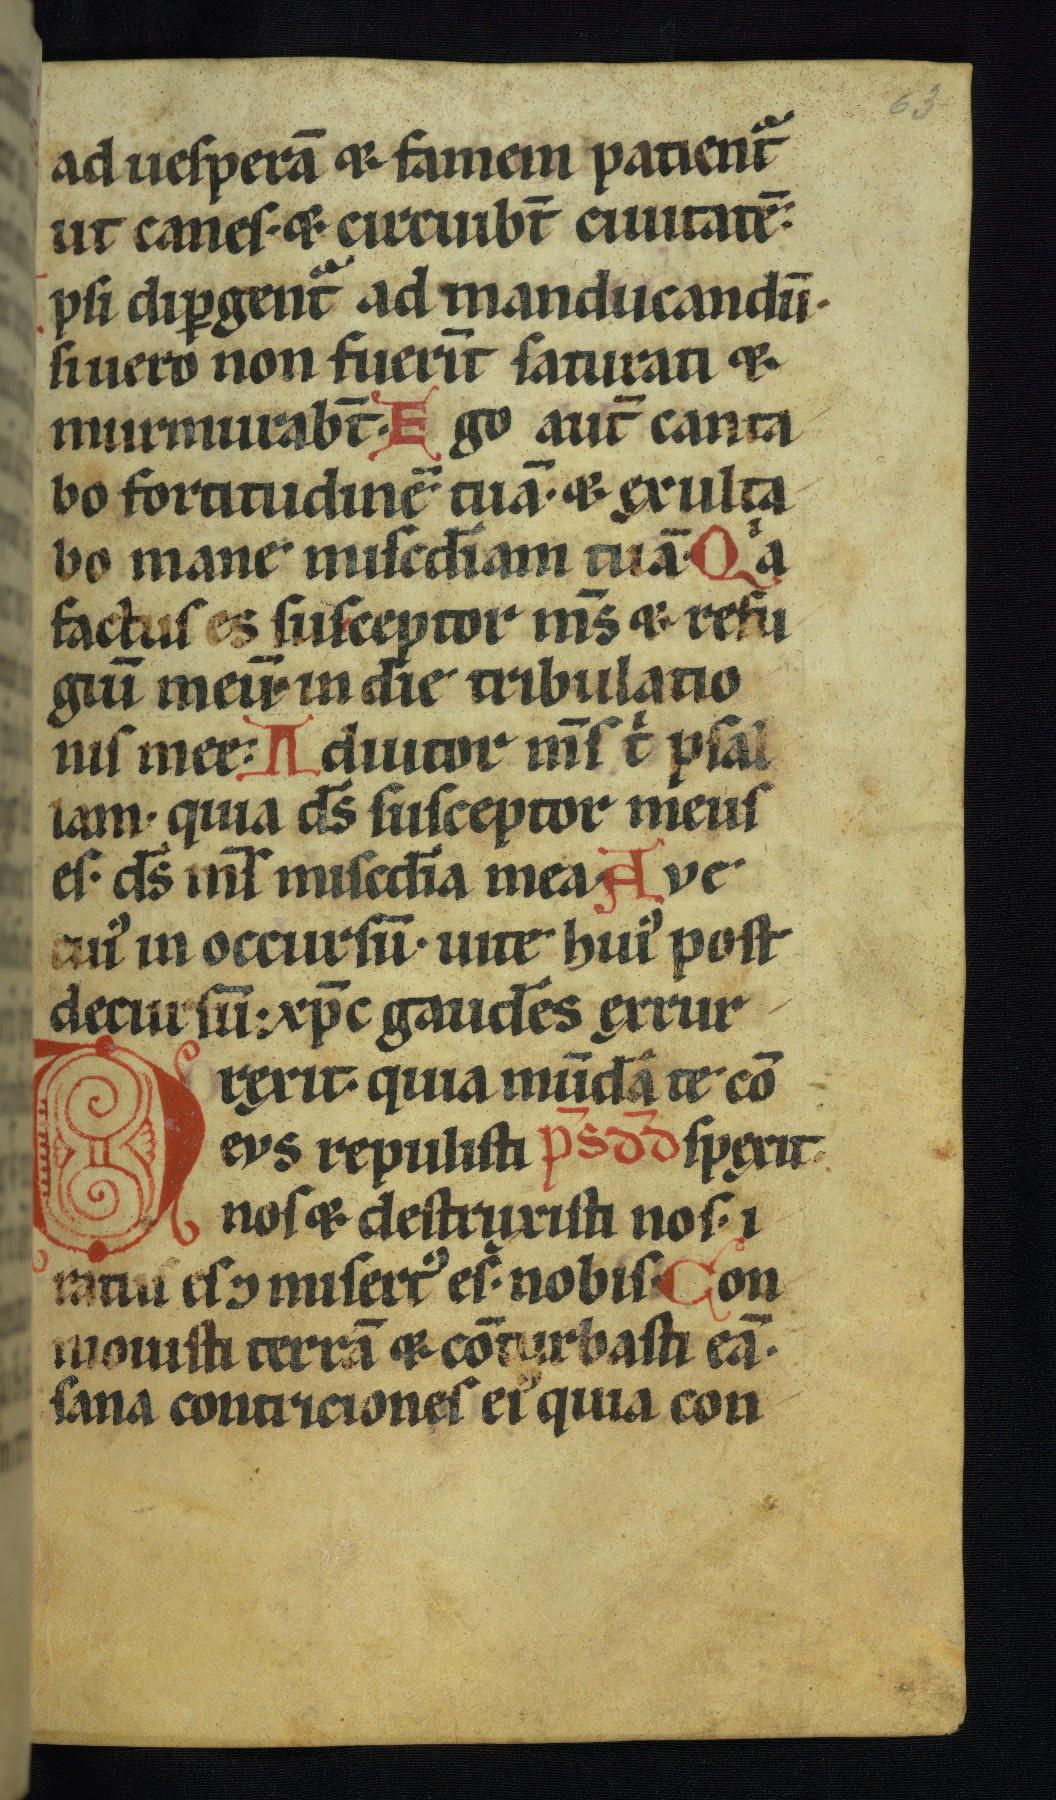 63
ad uesperā & famem patientᷓ
ut canes· & circuibt̄ ciuitatē:
psi diꝑgentᷓ ad manducandū·
si uero non fuerīt saturati &
murmurabt̄· Ego aut̄ canta
bo fortitudinē tuā· & exulta
bo mane misc̄diam tuā· Qͥa
factus es susceptor m̄s & refu
giū meū· in die tribulatio
nis mee: Adiutor m̄s tͥ psal
lam· quia ds̄ susceptor meus
es· ds̄ m̄s misc̄dia mea· Aue
cuiꝰ in occursū· uite huiꝰ post
decursū: xp̄c gaudēs errur
rexit· quia mūda te cō
Deus repulisti ps̄ dd̄ spexit·
nos & destruxisti nos· i
ratus es ⁊ misertꝰ es̄· nobis· Con
mouisti terrā & cōturbasti eā·
sana contriciones eiꝰ quia con